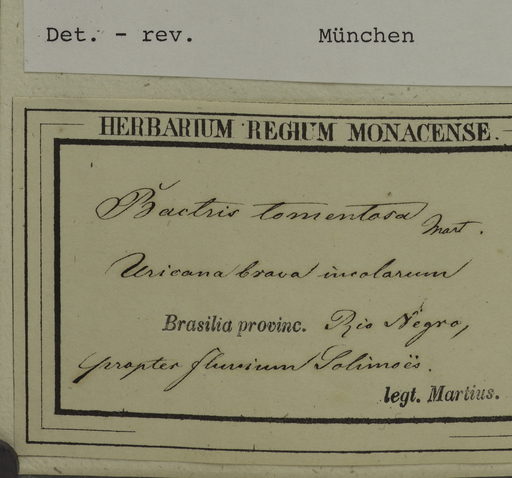 Det. - rev. München
HERBARIUM REGIUM MONACENSE.
Bactris tomentosa Mart.
Uricana brava incolarum
Brasilia provinc. Rio Negro,
propter fluvium Solimoës.
legt. Martius.